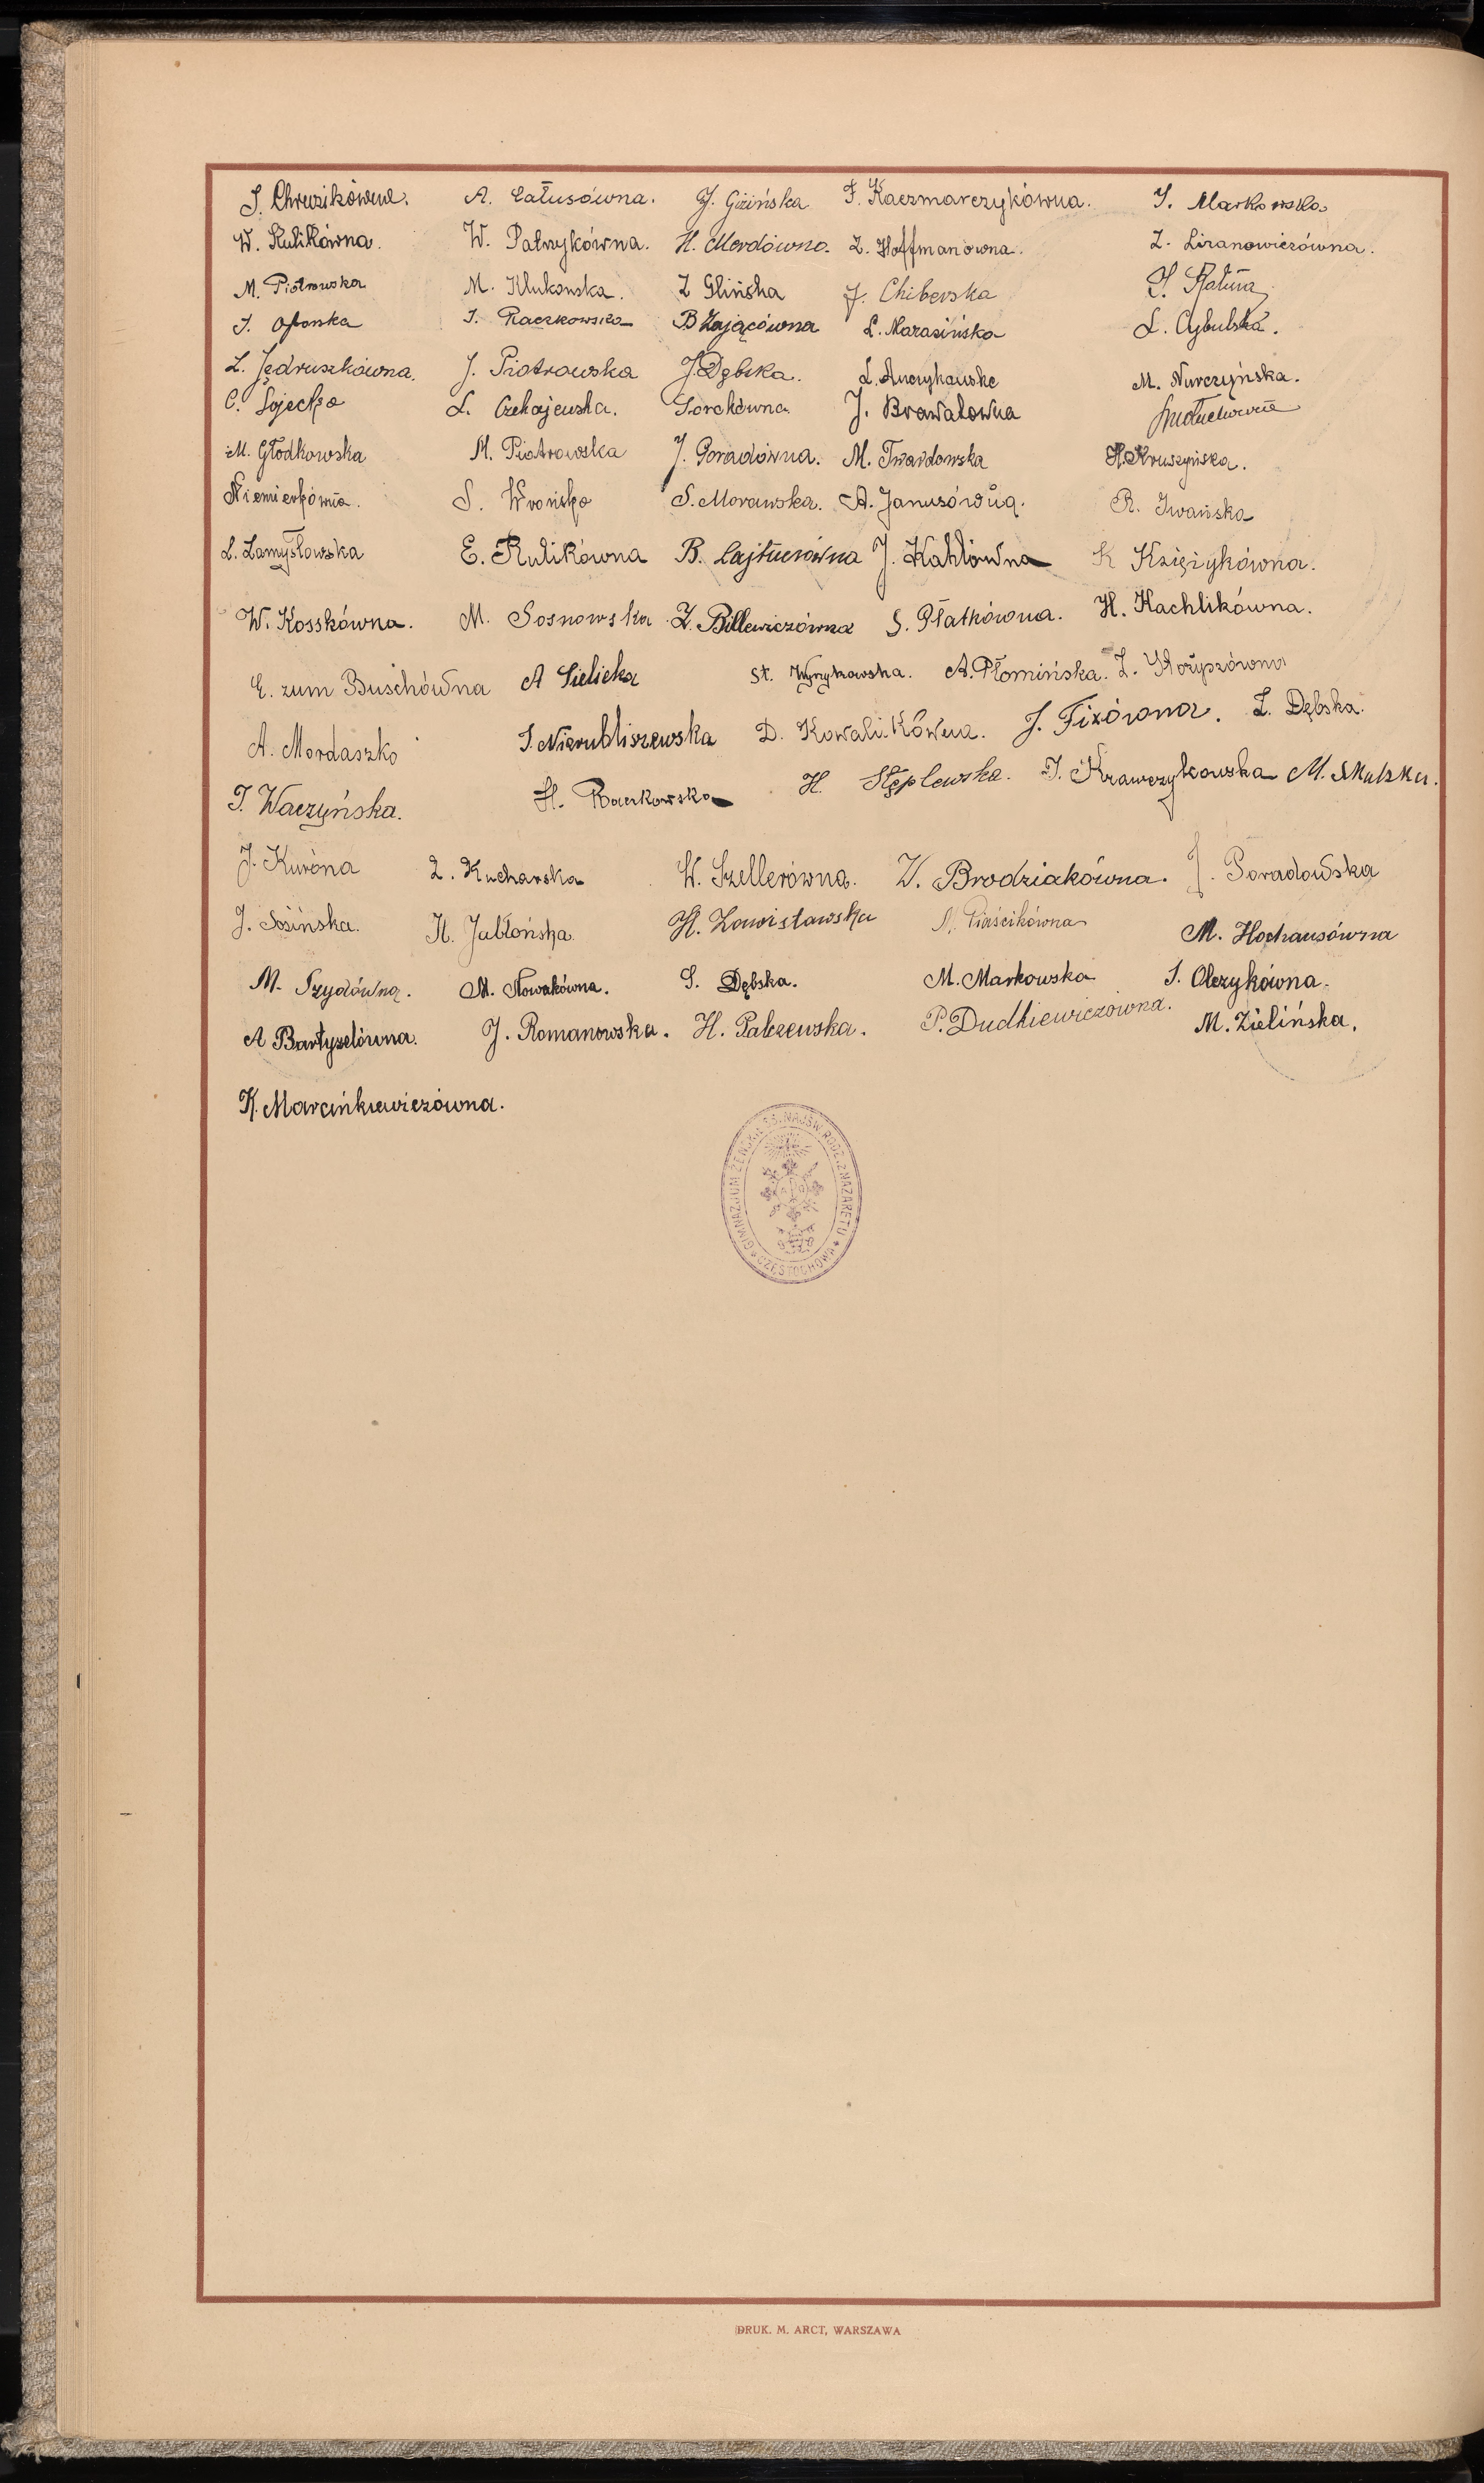 A. Całusówna. J. Gizińska F. Kaczmarczykówna. J. Markowska
W. Kulikówna. W. Patrzykówna. H. Merdówna. Z. Hoffmanówna. Z. Liranowiczówna.
M. Piotrowska M. Klukowska. Z Glińska J. Chiberska
J. Raczkowska B Zającówna L. Marasińska L. Cybulska.
L. Jędruszkówna. J. Piotrowska J. Dębska. M. Nurczyńska.
C. Łojecka L. Czekajewska. Sorokówna J. Brawatówna
M. Głodkowska M. Piotrowska J. Goradówna. M. Twardowska H. Kruszyńska.
Niemierkówna. S. Wrońska S. Morawska. A. Janusówna. R. Iwańska
L. Zamysłowska E. Kulikówna B. Lajtnerówna J. Kahlówna K Księżykówna.
W. Kosskówna. M. Sosnowska Z. Billewiczówna S. Płatkówna. H. Kachlikówna.
E. zum Buschówna A Sielicka St. Wyrykowska. A. Płomińska.
A. Mordaszko J. Nierubliszewska D. Kowalikówna. J. Fixówna. Z. Dębska.
J. Waczyńska. H. Raczkowska H. Stęplewska. J. Krawczykowska M. Skulska.
J. Kuróna Z. Kucharska W. Szellerówna. W. Brodziakówna. J. Poradowska
J. Sosińska. H. Jabłońska. H. Zawistowska M. Piaścikówna M. Hochausówna
M. Szydówna. M. Nowakówna. S. Dębska. M. Markowska J. Olczykówna.
A Bartyzelówna. J. Romanowska. H. Palczewska. P. Dudkiewiczówna. M. Zielińska.
K. Marcinkiewiczówna.
GIMNAZJUM ŻEŃSKIE S.S. NAJŚW. RODZ. Z NAZARETU
CZĘSTOCHOWA
DRUK. M. ARCT, WARSZAWA